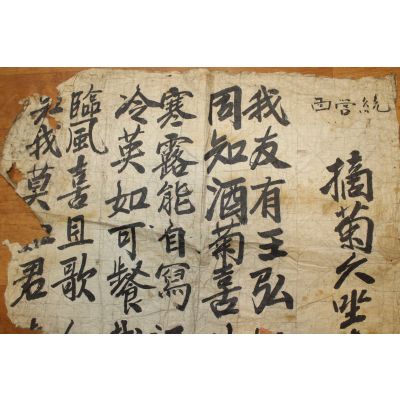 統营西
摘菊久坐
我友有王弘
知酒菊喜
寒露能自寫
冷英如可餐
臨風喜且歌
知我莫君